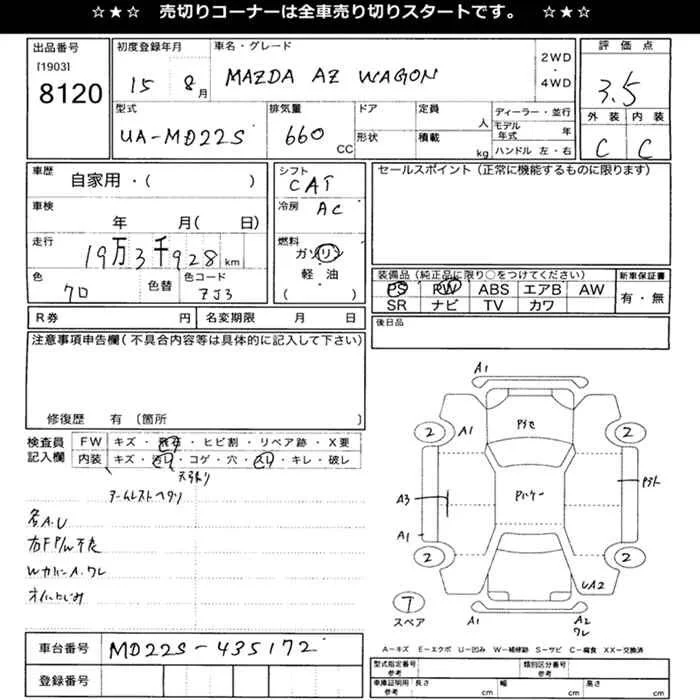 ☆★☆ 売切りコーナーは全車売り切りスタートです。 ☆★☆
出品番号
[1903]
8120
初度登録年月
15 8月
車名・グレード
MAZDA AZ WAGON
2WD
・
4WD
評価点
3.5
外装 内装
C C
型式
UA-MD22S
排気量
660 CC
ドア
形状
定員 人
積載 kg
ディーラー・並行
モデル年式 年
ハンドル 左・右
車歴
自家用・( )
車検
年 月( 日)
走行
19万3千928 km
色
クロ
色替
色コード
ZJ3
シフト
CAT
冷房
AC
燃料
ガソリン
軽油
( )
セールスポイント(正常に機能するものに限ります)
装備品(純正品に限り○をつけてください)
PS PW ABS エアB AW
SR ナビ TV カワ
新車保証書
有・無
後日品
R券 円
名変期限 月 日
注意事項申告欄(不具合内容等は具体的に記入して下さい)
修復歴 有 〔箇所 〕
検査員
記入欄
FW キズ・飛石・ヒビ割・リペア跡・X要
内装 キズ・汚レ・コゲ・穴・スレ・キレ・破レ
天張り
アームレストヘタリ
各A.U
右F P/W不良
Wカバー A.ワレ
オイルにじみ
A1
2 A1 2
A3
A1
2 2
UA2
7
スペア
A1 A2
ワレ
A-キズ E-エクボ U-凹み W-補修跡 S-サビ C-腐食 XX-交換済
車台番号
MD22S-435172
登録番号
型式指定番号
参考
類別区分番号
参考
車庫証明用
参考
長さ cm 幅 cm 高さ cm